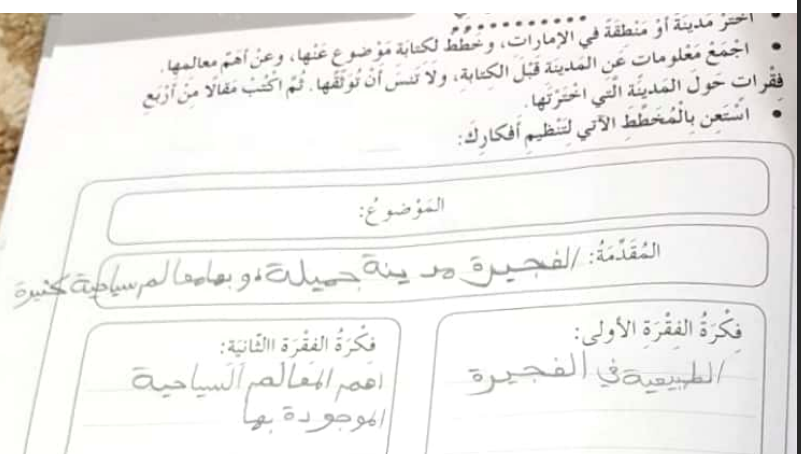 • اخْتَرْ مَدينَةً أَوْ مَنْطِقَةً في الإمارات، وخَطِّطْ لكتابَة مَوْضوع عَنْها، وعنْ أهَمِّ معالمِها.
• اجْمَعْ مَعْلومات عَنِ المَدينَة قَبْلَ الكِتابَة، ولا تَنسَ أَنْ تُوَثِّقَها. ثُمَّ اكْتُبْ مَقالًا مِنْ أَرْبَعِ
فِقْرات حَوْلَ المَدينَة الَّتي اخْتَرْتَها.
• اسْتَعِن بِالْمُخَطَّطِ الآتي لتَنْظيمِ أَفكارِكَ:
المَوْضوعُ:
المُقَدِّمَةُ: الفجيرة مدينة جميلة و بها معالم سياحية كثيرة
فِكْرَةُ الفِقْرَةِ الأولى:
الطبيعية في الفجيرة
فِكْرَةُ الفقْرَة االثّانيَة:
اهم المعالم السياحية
الموجودة بها